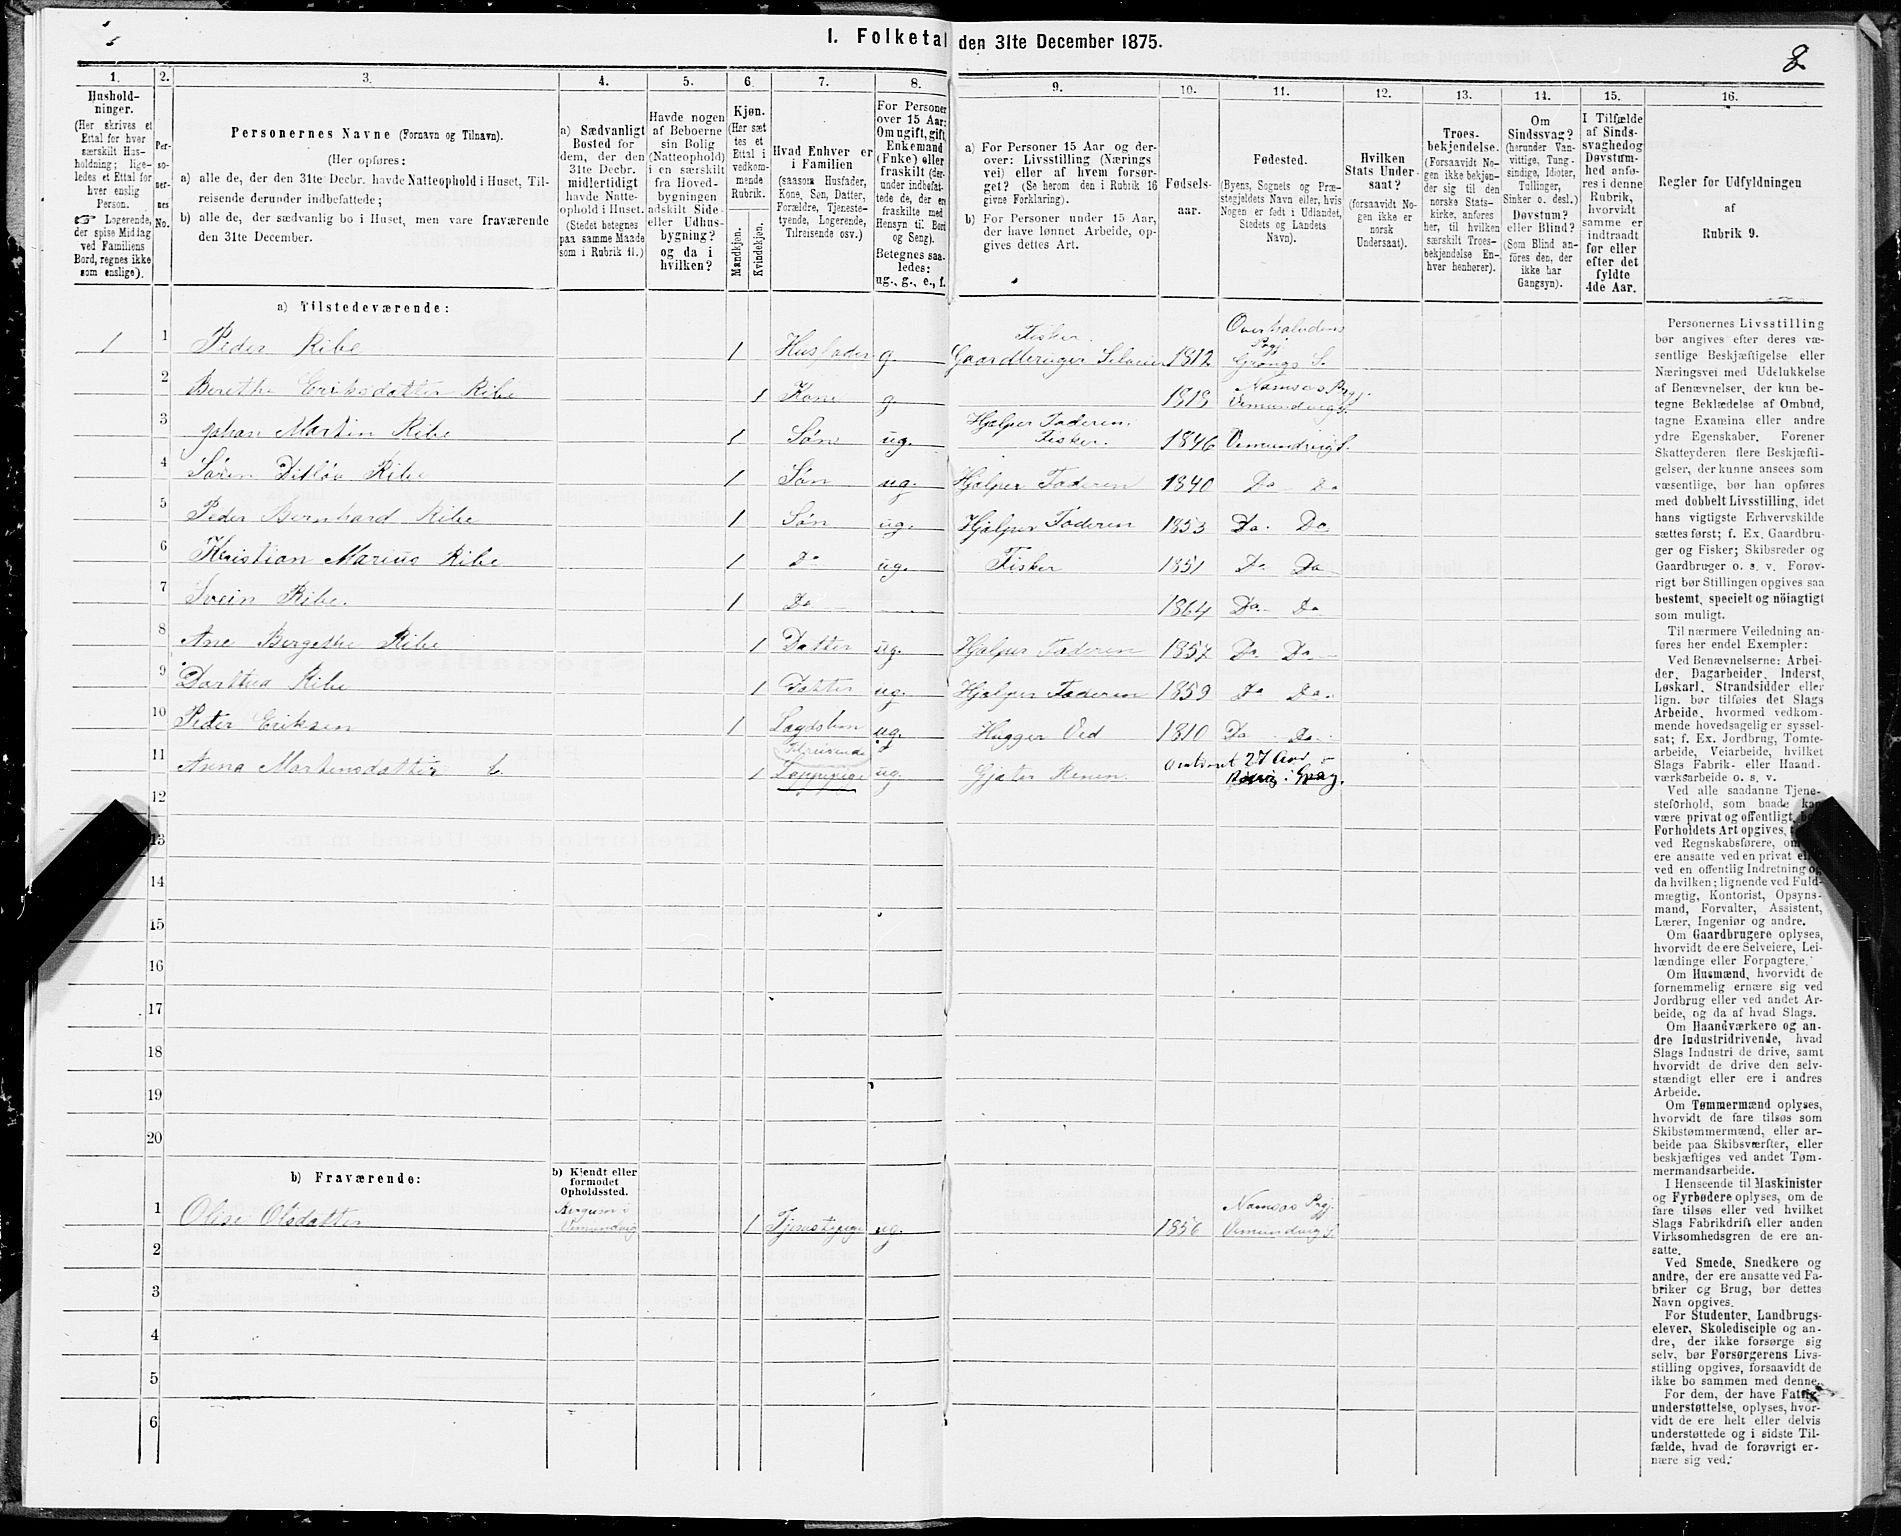 I. Folketal den 31te December 1875.
8
1. 2. 3. 4. 5. 6. 7. 8. 9. 10. 11. 12. 13. 14. 15. 16.
Hushold-
ninger.
(Her skrives et
Ettal for hver
særskilt Hus-
holdning; lige-
ledes et Ettal for
hver enslig
Person.
☞ Logerende,
der spise Middag
ved Familiens
Bord, regnes ikke
som enslige).
Per-
so-
ner-
nes
No.
Personernes Navne (Fornavn og Tilnavn).
(Her opføres:
a) alle de, der den 31te Decbr. havde Natteophold i Huset, Til-
reisende derunder indbefattede;
b) alle de, der sædvanlig bo i Huset, men vare fraværende
den 31te December.
a) Sædvanligt
Bosted for
dem, der den
31te Decbr.
midlertidigt
havde Natte-
ophold i Huset.
(Stedet betegnes
paa samme Maade
som i Rubrik 11.)
Havde nogen
af Beboerne
sin Bolig
(Natteophold)
i en særskilt
fra Hoved-
bygningen
adskilt Side-
eller Udhus-
bygning?
og da i
hvilken?
Kjøn.
(Her sæt
tes et
Ettal i
vedkom-
mende
Rubrik.
Mandkjøn.
Kvindekjøn.
Hvad Enhver er
i Familien
(saasom Husfader,
Kone, Søn, Datter,
Forældre, Tjeneste-
tyende, Logerende,
Tilreisende osv.)
For Personer
over 15 Aar:
Om ugift, gift,
Enkemand
(Enke) eller
fraskilt (der-
under indbefat-
tede de, der ere
fraskilte med
Hensyn til Bord
og Seng).
Betegnes saa-
ledes:
ug., g., e., f.
a) For Personer 15 Aar og der-
over: Livsstilling (Nærings
vei) eller af hvem forsør-
get? (Se herom den i Rubrik 16
givne Forklaring).
b) For Personer under 15 Aar,
der have lønnet Arbeide, op-
gives dettes Art.
Fødsels-
aar.
Fødested.
(Byens, Sognets og Præ-
stegjeldets Navn eller, hvis
Nogen er født i Udlandet,
Stedets og Landets
Navn).
Hvilken
Stats Under-
saat?
(forsaavidt No-
gen ikke er
norsk
Undersaat).
Troes-
bekjendelse.
(Forsaavidt No-
gen ikke bekjen-
der sig til den
norske Stats-
kirke, anføres
her, til hvilken
særskilt Troes-
bekjendelse En-
hver henhører).
Om
Sindssvag?
(herunder Van-
vittige, Tung-
sindige, Idioter,
Tullinger,
Sinker o. desl.)
Døvstum?
eller Blind?
(Som Blind an-
føres den, der
ikke har
Gangsyn).
I Tilfælde
af Sinds-
svaghed og
Døvstum-
hed anfø-
res i denne
Rubrik,
hvorvidt
samme er
indtraadt
før eller
efter det
fyldte
4de Aar.
Regler for Udfyldningen
af
Rubrik 9.
a) Tilstedeværende:
1 1 Peder Ribe 1 Husfader g. Fisker. Gaardbruger Selveier 1812 Overhaldens Prgj. Grongs S.
2 Berethe Eriksdatter Ribe 1 Kone g. 1819 Namsos Prgj. Vemundvigs.
3 Johan Martin Ribe 1 Søn ug. Hjælper Faderen. Fisker. 1846 Vemundvigs.
4 Søren Ditløv Ribe 1 Søn ug. Hjælper Faderen 1840 Do Do
5 Peder Bernhard Ribe 1 Søn ug. Hjælper Faderen 1853 Do. Do
6 Kristian Marius Ribe 1 Do ug. Fisker 1851 Do Do
7 Svein Ribe. 1 Do 1864 Do. Do
8 Ane Bergethe Ribe 1 Datter ug. Hjælper Faderen 1857 Do Do
9 Dorthea Ribe 1 Datter ug. Hjælper Faderen 1859 Do Do.
10 Peder Eriksen 1 Lægdslem ug. Hugger Ved 1810 Do Do.
11 Anna Mortensdatter 1 Tilreisende Lappepige ug. Gjæter Renen. omtrent 27 Aar
12
13
14
15
16
17
18
19
20
b) Fraværende:
b) Kjendt eller
formodet
Opholdssted.
1 Oline Olsdatter Vemundvig 1 Tjenestepige ug. 1856 Namsos Prgj. Vemundvigs.
2
3
4
5
6
Personernes Livsstilling
bør angives efter deres væ-
sentlige Beskjæftigelse eller
Næringsvei med Udelukkelse
af Benævnelser, der kun be-
tegne Beklædelse af Ombud,
tagne Examina eller andre
ydre Egenskaber. Forener
Skatteyderen flere Beskjæfti-
gelser, der kunne ansees som
væsentlige, bør han opføres
med dobbelt Livsstilling, idet
hans vigtigste Erhvervskilde
sættes først; f. Ex. Gaardbru-
ger og Fisker; Skibsreder og
Gaardbruger o. s. v. Forøv-
rigt bør Stillingen opgives saa
bestemt, specielt og nöiagtigt
som muligt.
Til nærmere Veiledning an-
føres her endel Exempler:
Ved Benævnelserne: Arbei-
der, Dagarbeider, Inderst,
Løskarl, Strandsidder eller
lign. bør tilføies det Slags
Arbeide, hvormed vedkom-
mende hovedsagelig er syssel-
sat; f. Ex. Jordbrug, Tomte-
arbeide, Veiarbeide, hvilket
Slags Fabrik- eller Haand-
værksarbeide o. s. v.
Ved alle saadanne Tjene-
steforhold, som baade kan
være privat og offentligt, bør
Forholdets Art opgives,
ved Regnskabsførere, om
ere ansatte ved en privat eller
ved en offentlig Indretning og
da hvilken; lignende ved Fuld-
mægtig, Kontorist, Opsyns-
mand, Forvalter, Assistent,
Lærer, Ingeniør og andre.
Om Gaardbrugere oplyses,
hvorvidt de ere Selveiere, Lei-
lændinge eller Forpagtere.
Om Husmænd, hvorvidt de
fornemmelig ernære sig ved
Jordbrug eller ved andet Ar-
beide, og da af hvad Slags.
Om Haandværkere og an-
dre Industridrivende, hvad
Slags Industri de drive, samt
hvorvidt de drive den selv-
stændigt eller ere i andres
Arbeide.
Om Tømmermænd oplyses,
hvorvidt de fare tilsøs som
Skibstømmermænd, eller ar-
beide paa Skibsværfter, eller
beskjæftiges ved andet Tøm-
mermandsarbeide.
I Henseende til Maskinister
og Fyrbødere oplyses, om de
fare tilsøs eller ved hvilket
Slags Fabrikdrift eller anden
Virksomhedsgren de ere an-
satte.
Ved Smede, Snedkere og
andre, der ere ansatte ved Fa-
briker og Brug, bør dettes
Navn opgives.
For Studenter, Landbrugs-
elever, Skoledisciple og an-
dre, der ikke forsørge sig
selv, bør Forsørgerens Livs-
stilling opgives, forsaavidt de
ikke bo sammen med denne.
For dem, der have Fattig-
understøttelse, oplyses, hvor-
vidt de ere helt eller delvis
understøttede og i sidste Til-
fælde, hvad de forøvrigt er-
nære sig ved.